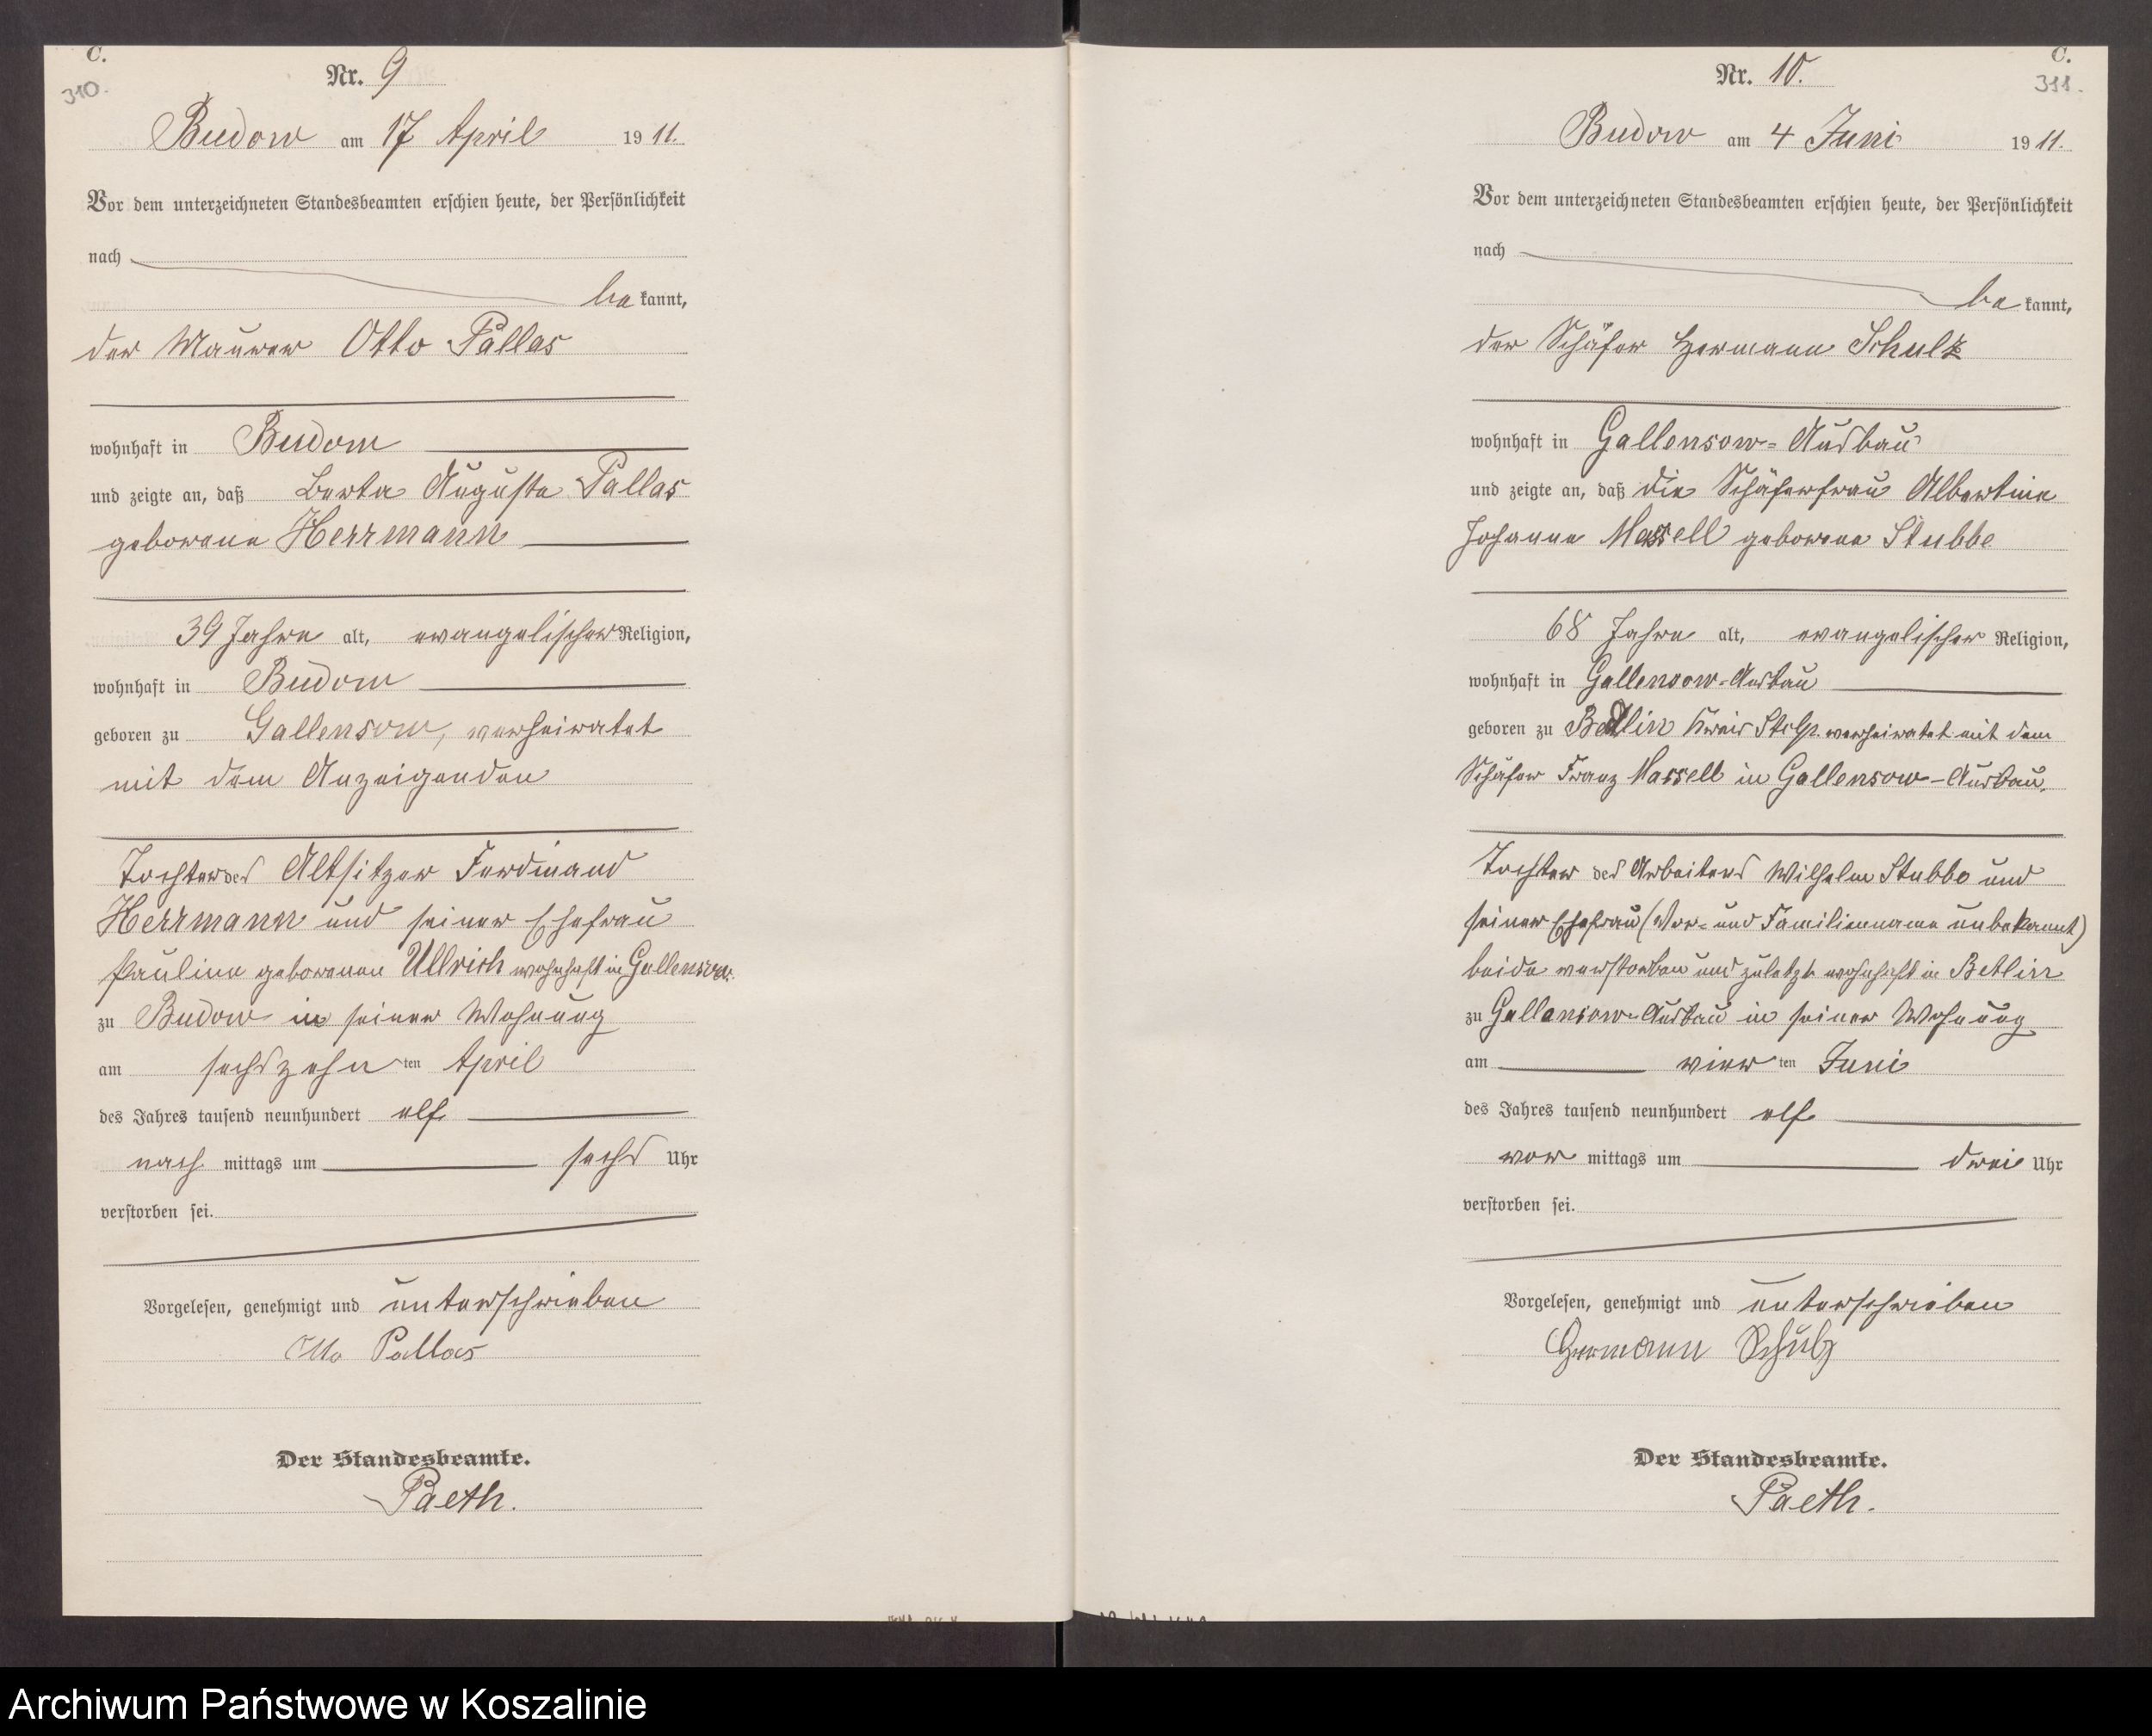 C.
310.
Nr. 9
Budow am 17 April 1911.
Vor dem unterzeichneten Standesbeamten erschien heute, der Persönlichkeit
nach
be kannt,
der Maurer Otto Pallas
wohnhaft in Budow
und zeigte an, daß Berta Auguste Pallas
geborene Herrmann
39 Jahre alt, evangelischer Religion,
wohnhaft in Budow
geboren zu Gallensow, verheiratet
mit dem Anzeigenden
Tochter des Altsitzer Ferdinand
Herrmann und seiner Ehefrau
Pauline geborenen Ullrich wohnhaft in Gallensow.
zu Budow in seiner Wohnung
am sechszehn ten April
des Jahres tausend neunhundert elf
nach mittags um sechs Uhr
verstorben sei.
Vorgelesen, genehmigt und unterschrieben
Otto Pallas
Der Standesbeamte.
Paeth.
C.
311.
Nr. 10.
Budow am 4 Juni 1911.
Vor dem unterzeichneten Standesbeamten erschien heute, der Persönlichkeit
nach
be kannt,
der Schäfer Hermann Schulz
wohnhaft in Gallensow-Ausbau
und zeigte an, daß die Schäferfrau Albertine
Johanne Massell geborene Stubbe
68 Jahre alt, evangelischer Religion,
wohnhaft in Gallensow-Ausbau
geboren zu Beßlin Kreis Stolp verheiratet mit dem
Schäfer Franz Massell in Gallensow-Ausbau.
Tochter des Arbeiters Wilhelm Stubbe und
seiner Ehefrau (Vor- und Familienname unbekannt)
beide verstorben und zuletzt wohnhaft in
zu Gallensow-Ausbau in seiner Wohnung
am vier ten Juni
des Jahres tausend neunhundert elf
vor mittags um drei Uhr
verstorben sei.
Vorgelesen, genehmigt und unterschrieben
Hermann Schulz
Der Standesbeamte.
Paeth.
Archiwum Państwowe w Koszalinie